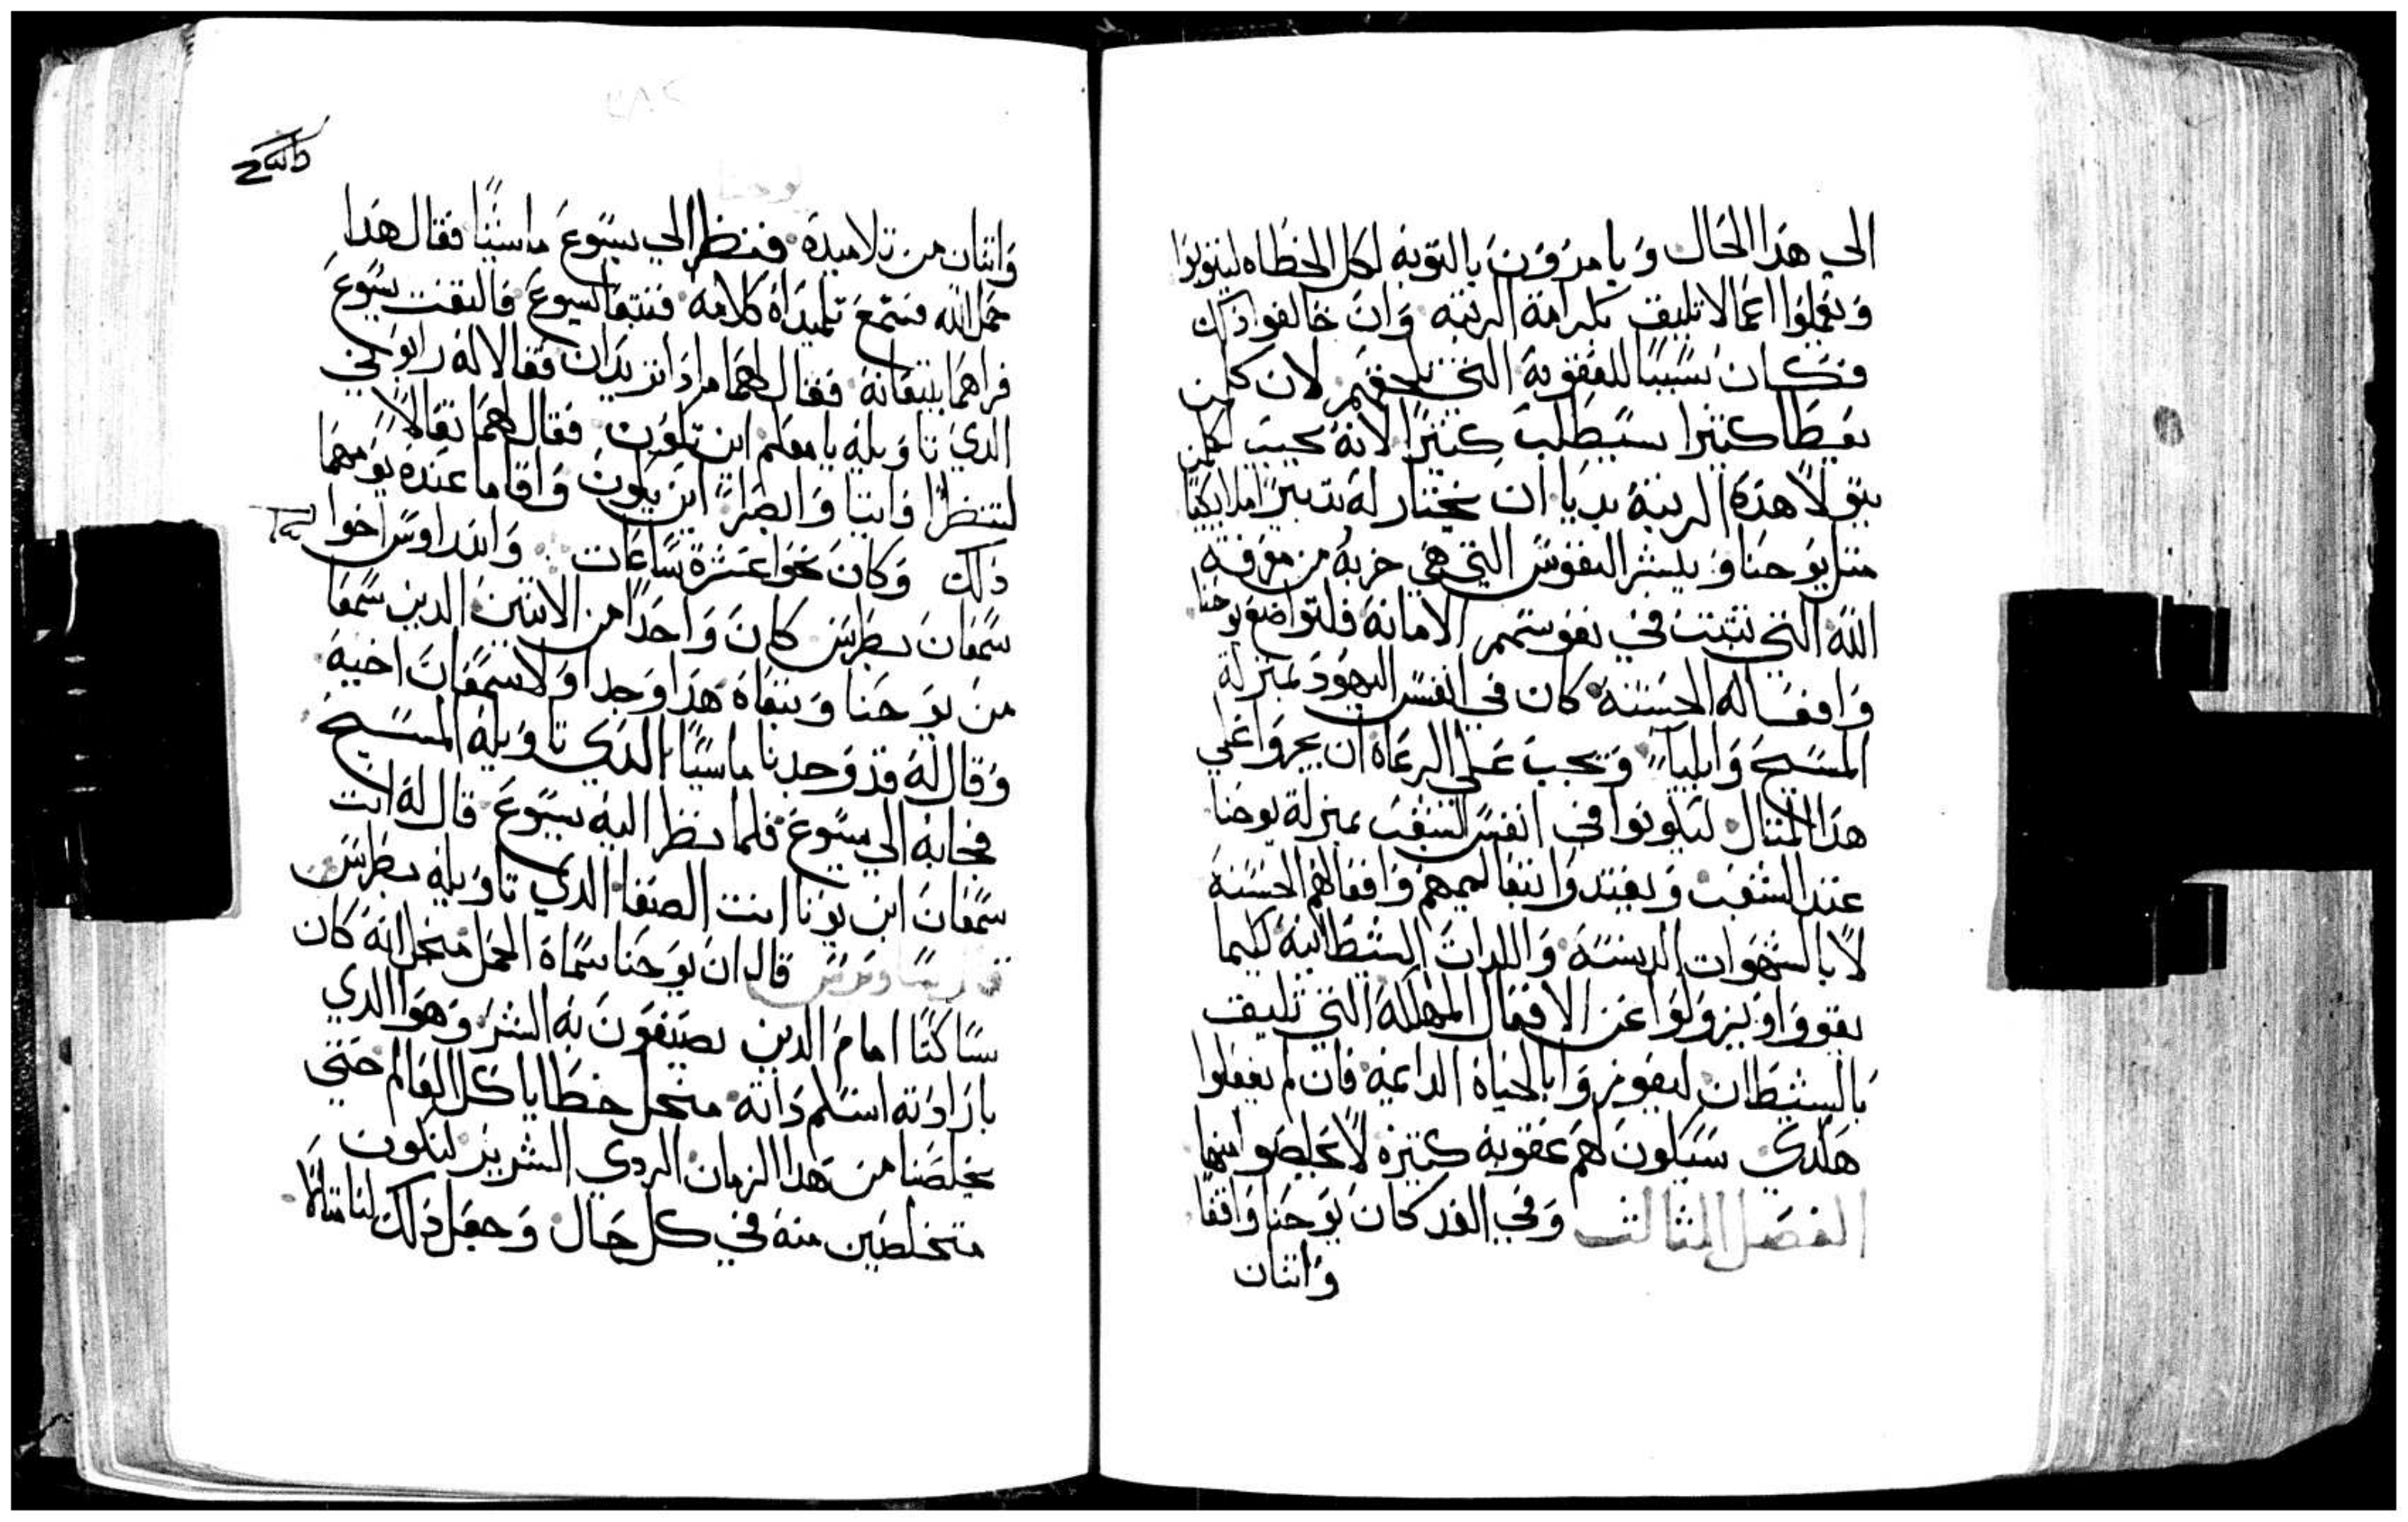 الى هذا الحال ويامرون بالتوبه لكل الخطاه ليتوبوا
ويعملوا اعمالا تليق بكرامة الرتبه وان خالفوا ذلك
فكان نسببا للعقوبة التي تلحقهم لان كلمن
يعطا كثيرا سيطلب كثيرا لانه يجب لكلمن
يتولا هذه الرتبة بديا ان يختار له تدبيرا ملايكيا
متل يوحنا ويبشر النفوس التي هي خربه من معرفة
الله التي تتبت في نفوسهم الامانة فلتواضع يوحنا
وافعاله الحسنة كان في انفس اليهود بمنزلة
المسيح وايليا ويجب على الرعاة ان يجروا على
هذا المتال ليكونوا في انفس الشعب بمنزلة يوحنا
عند الشعب ويقتدوا بتعاليمهم وافعالهم الحسنة
لا بالشهوات الدنسة واللدات الشيطانية كيما
يقووا ويزولوا عن الافعال المهلكة التي تليق
بالشيطان ليفوزوا بالحياة الدايمة فان لم يفعلوا
هكدي سيكون لهم عقوبة كتيره لا يخلصوا منها
الفصل الثالث وفي الغد كان يوحنا واقفا
واتنان
يوحنا
واتنان من تلاميده فنظر الى يسوع ماشيا فقال هدا
حمل الله فسمع تلميداه كلامه فتبعا يسوع فالتفت يسوع
فراهما يتبعانه فقال لهما مادا تريدان فقالا له رابوني
الدي تاويله يا معلم اين تكون فقال لهما تعالا
لتنظرا فاتيا وابصرا اين يكون واقاما عنده يومهما
ذلك وكان نحوا عشرة ساعات واندراوس اخوا
سمعان بطرس كان واحدا من الاتنين الدين سمعا
من يوحنا وتبعاه هدا وجد اولا سمعان اخيه
وقال له قد وجدنا ماسيا الدي تاويله المسيح
فجابه الى يسوع فلما نظر اليه يسوع قال له انت
سمعان ابن يونا انت الصفا الدي تاويله بطرس
قال ان يوحنا سماه الحمل منجل انه كان
ساكتا امام الدين يصنعون به الشر وهو الدي
بارادته اسلم داته منجل خطايا كل العالم حتي
يخلصنا من هدا الزمان الردي الشرير لنكون
متخلصين منه في كل حال وجعل دلك لنا متالا